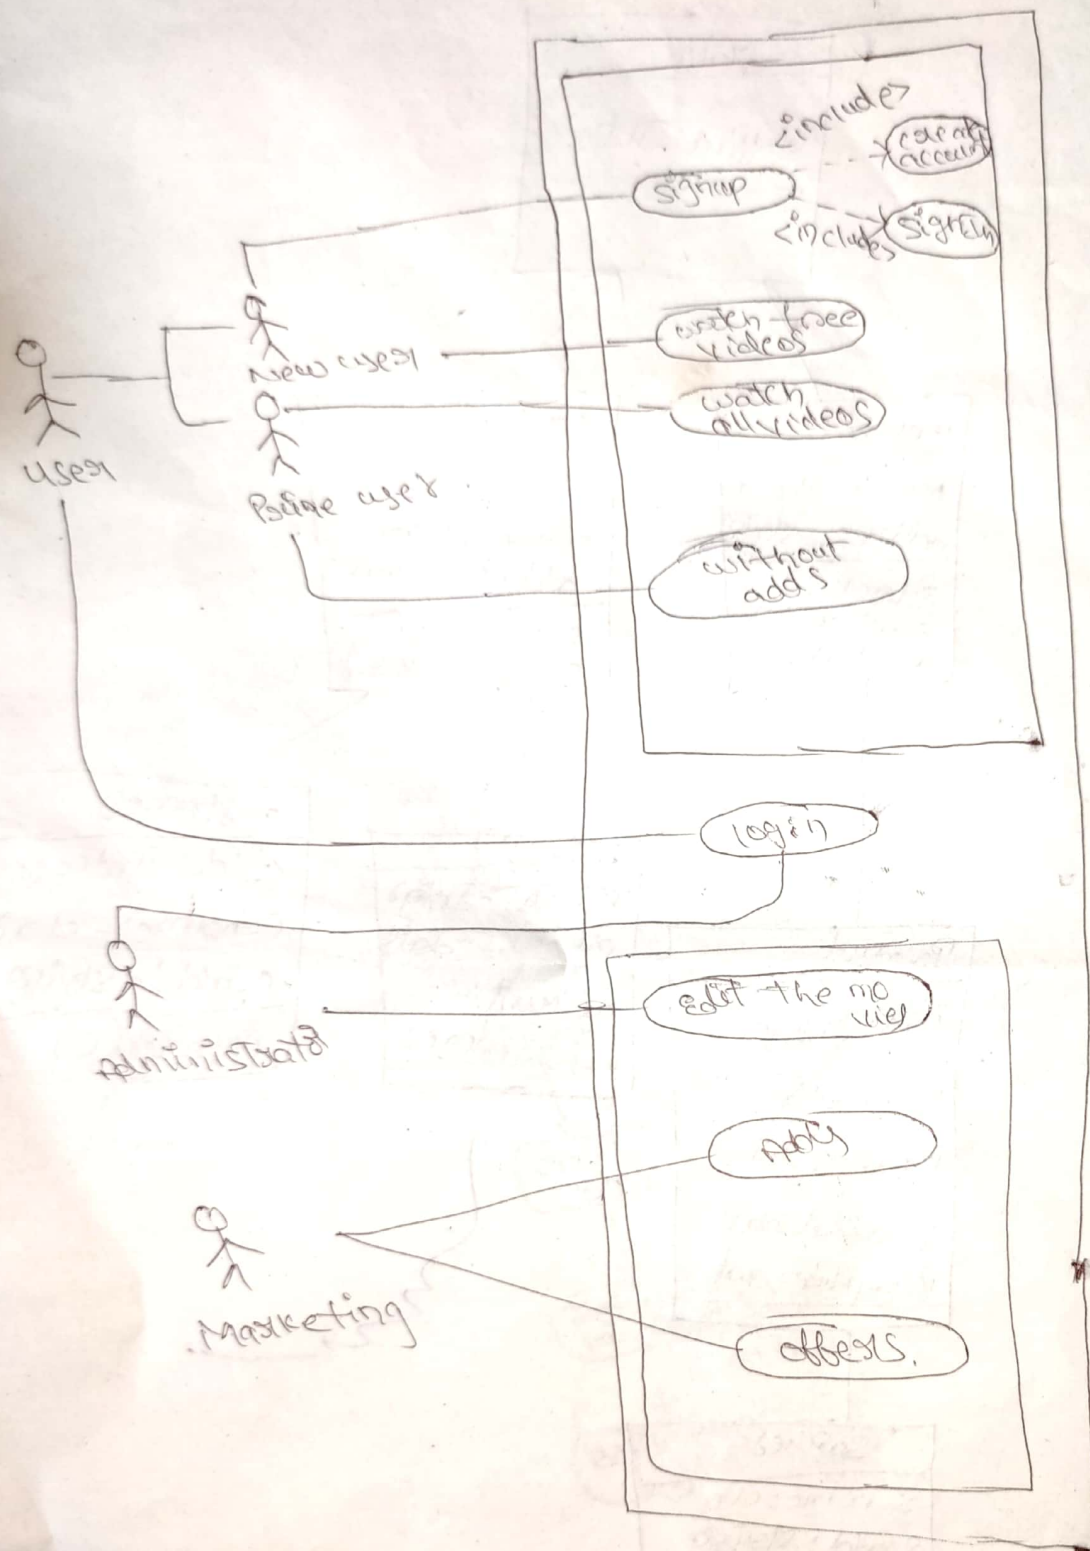 <include>
create
account
signup
<include>
SignIn
watch free
videos
New user
watch
all videos
user
Prime user
without
adds
login
Edit the mo
vies
Administrator
Marketing
offers.